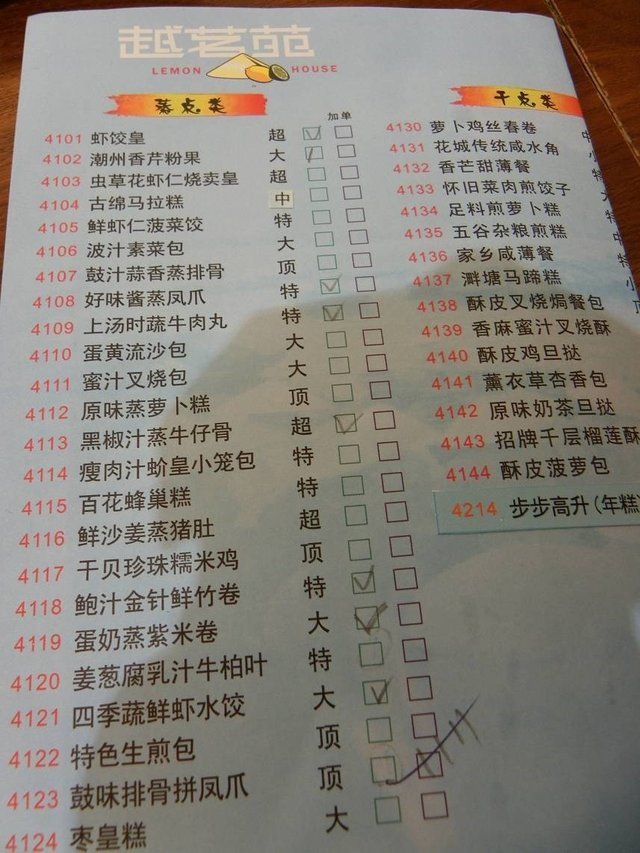 越茗苑
LEMON HOUSE
蒸点类
加单
4101 虾饺皇 超
4102 潮州香芹粉果 大
4103 虫草花虾仁烧卖皇 超
4104 古绵马拉糕 中
4105 鲜虾仁菠菜饺 特
4106 波汁素菜包 大
4107 鼓汁蒜香蒸排骨 顶
4108 好味酱蒸凤爪 特
4109 上汤时蔬牛肉丸 特
4110 蛋黄流沙包 大
4111 蜜汁叉烧包 大
4112 原味蒸萝卜糕 顶
4113 黑椒汁蒸牛仔骨 超
4114 瘦肉汁蚧皇小笼包 特
4115 百花蜂巢糕 特
4116 鲜沙姜蒸猪肚 超
4117 干贝珍珠糯米鸡 顶
4118 鲍汁金针鲜竹卷 特
4119 蛋奶蒸紫米卷 大
4120 姜葱腐乳汁牛柏叶 特
4121 四季蔬鲜虾水饺 大
4122 特色生煎包 顶
4123 鼓味排骨拼凤爪 顶
4124 枣皇糕 大
干点类
4130 萝卜鸡丝春卷
4131 花城传统咸水角
4132 香芒甜薄餐
4133 怀旧菜肉煎饺子
4134 足料煎萝卜糕
4135 五谷杂粮煎糕
4136 家乡咸薄餐
4137 塘马蹄糕
4138 酥皮叉烧焗餐包
4139 香麻蜜汁叉烧酥
4140 酥皮鸡旦挞
4141 薰衣草杏香包
4142 原味奶茶旦挞
4143 招牌千层榴莲酥
4144 酥皮菠萝包
4214 步步高升(年糕